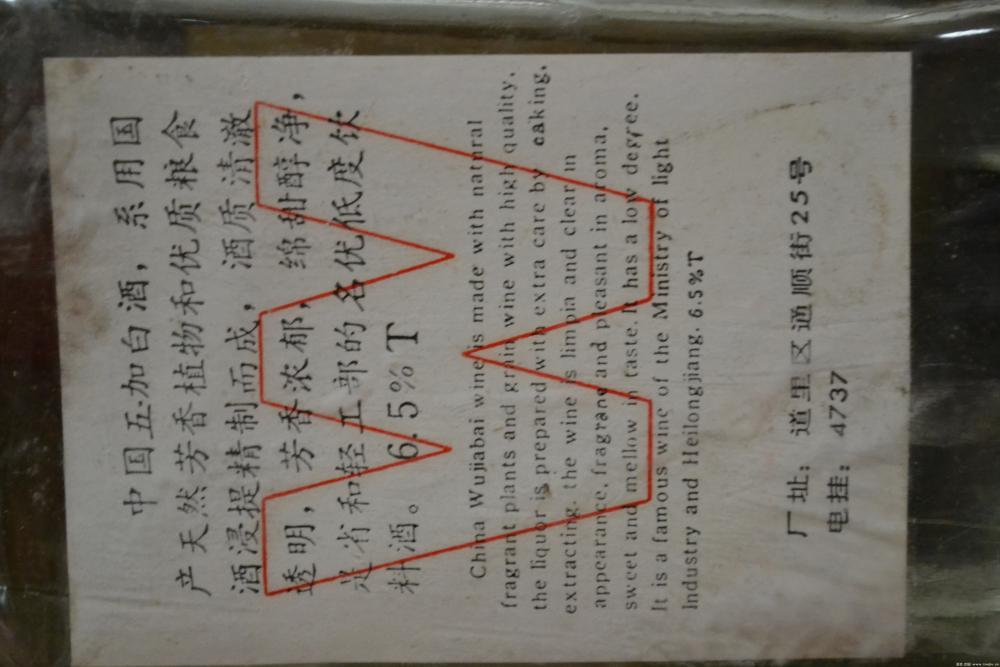 中国五加白酒，系用国
产天然芳香植物和优质粮食
酒浸提精制而成，酒质清澈
透明，芳香浓郁，绵甜醇净，
是省和轻工部的名优低度饮
料酒。6.5%T
China Wujiabai wine is made with natural
fragrant plants and grain wine with high quality.
the liquor is prepared with extra care by caking,
extracting. the wine is limpia and clear in
appearance, fragrane and pleasant in aroma,
sweet and mellow in taste. It has a low degree.
It is a famous wine of the Ministry of light
Industry and Heilongjiang. 6.5%T
厂址：道里区通顺街25号
电挂：4737